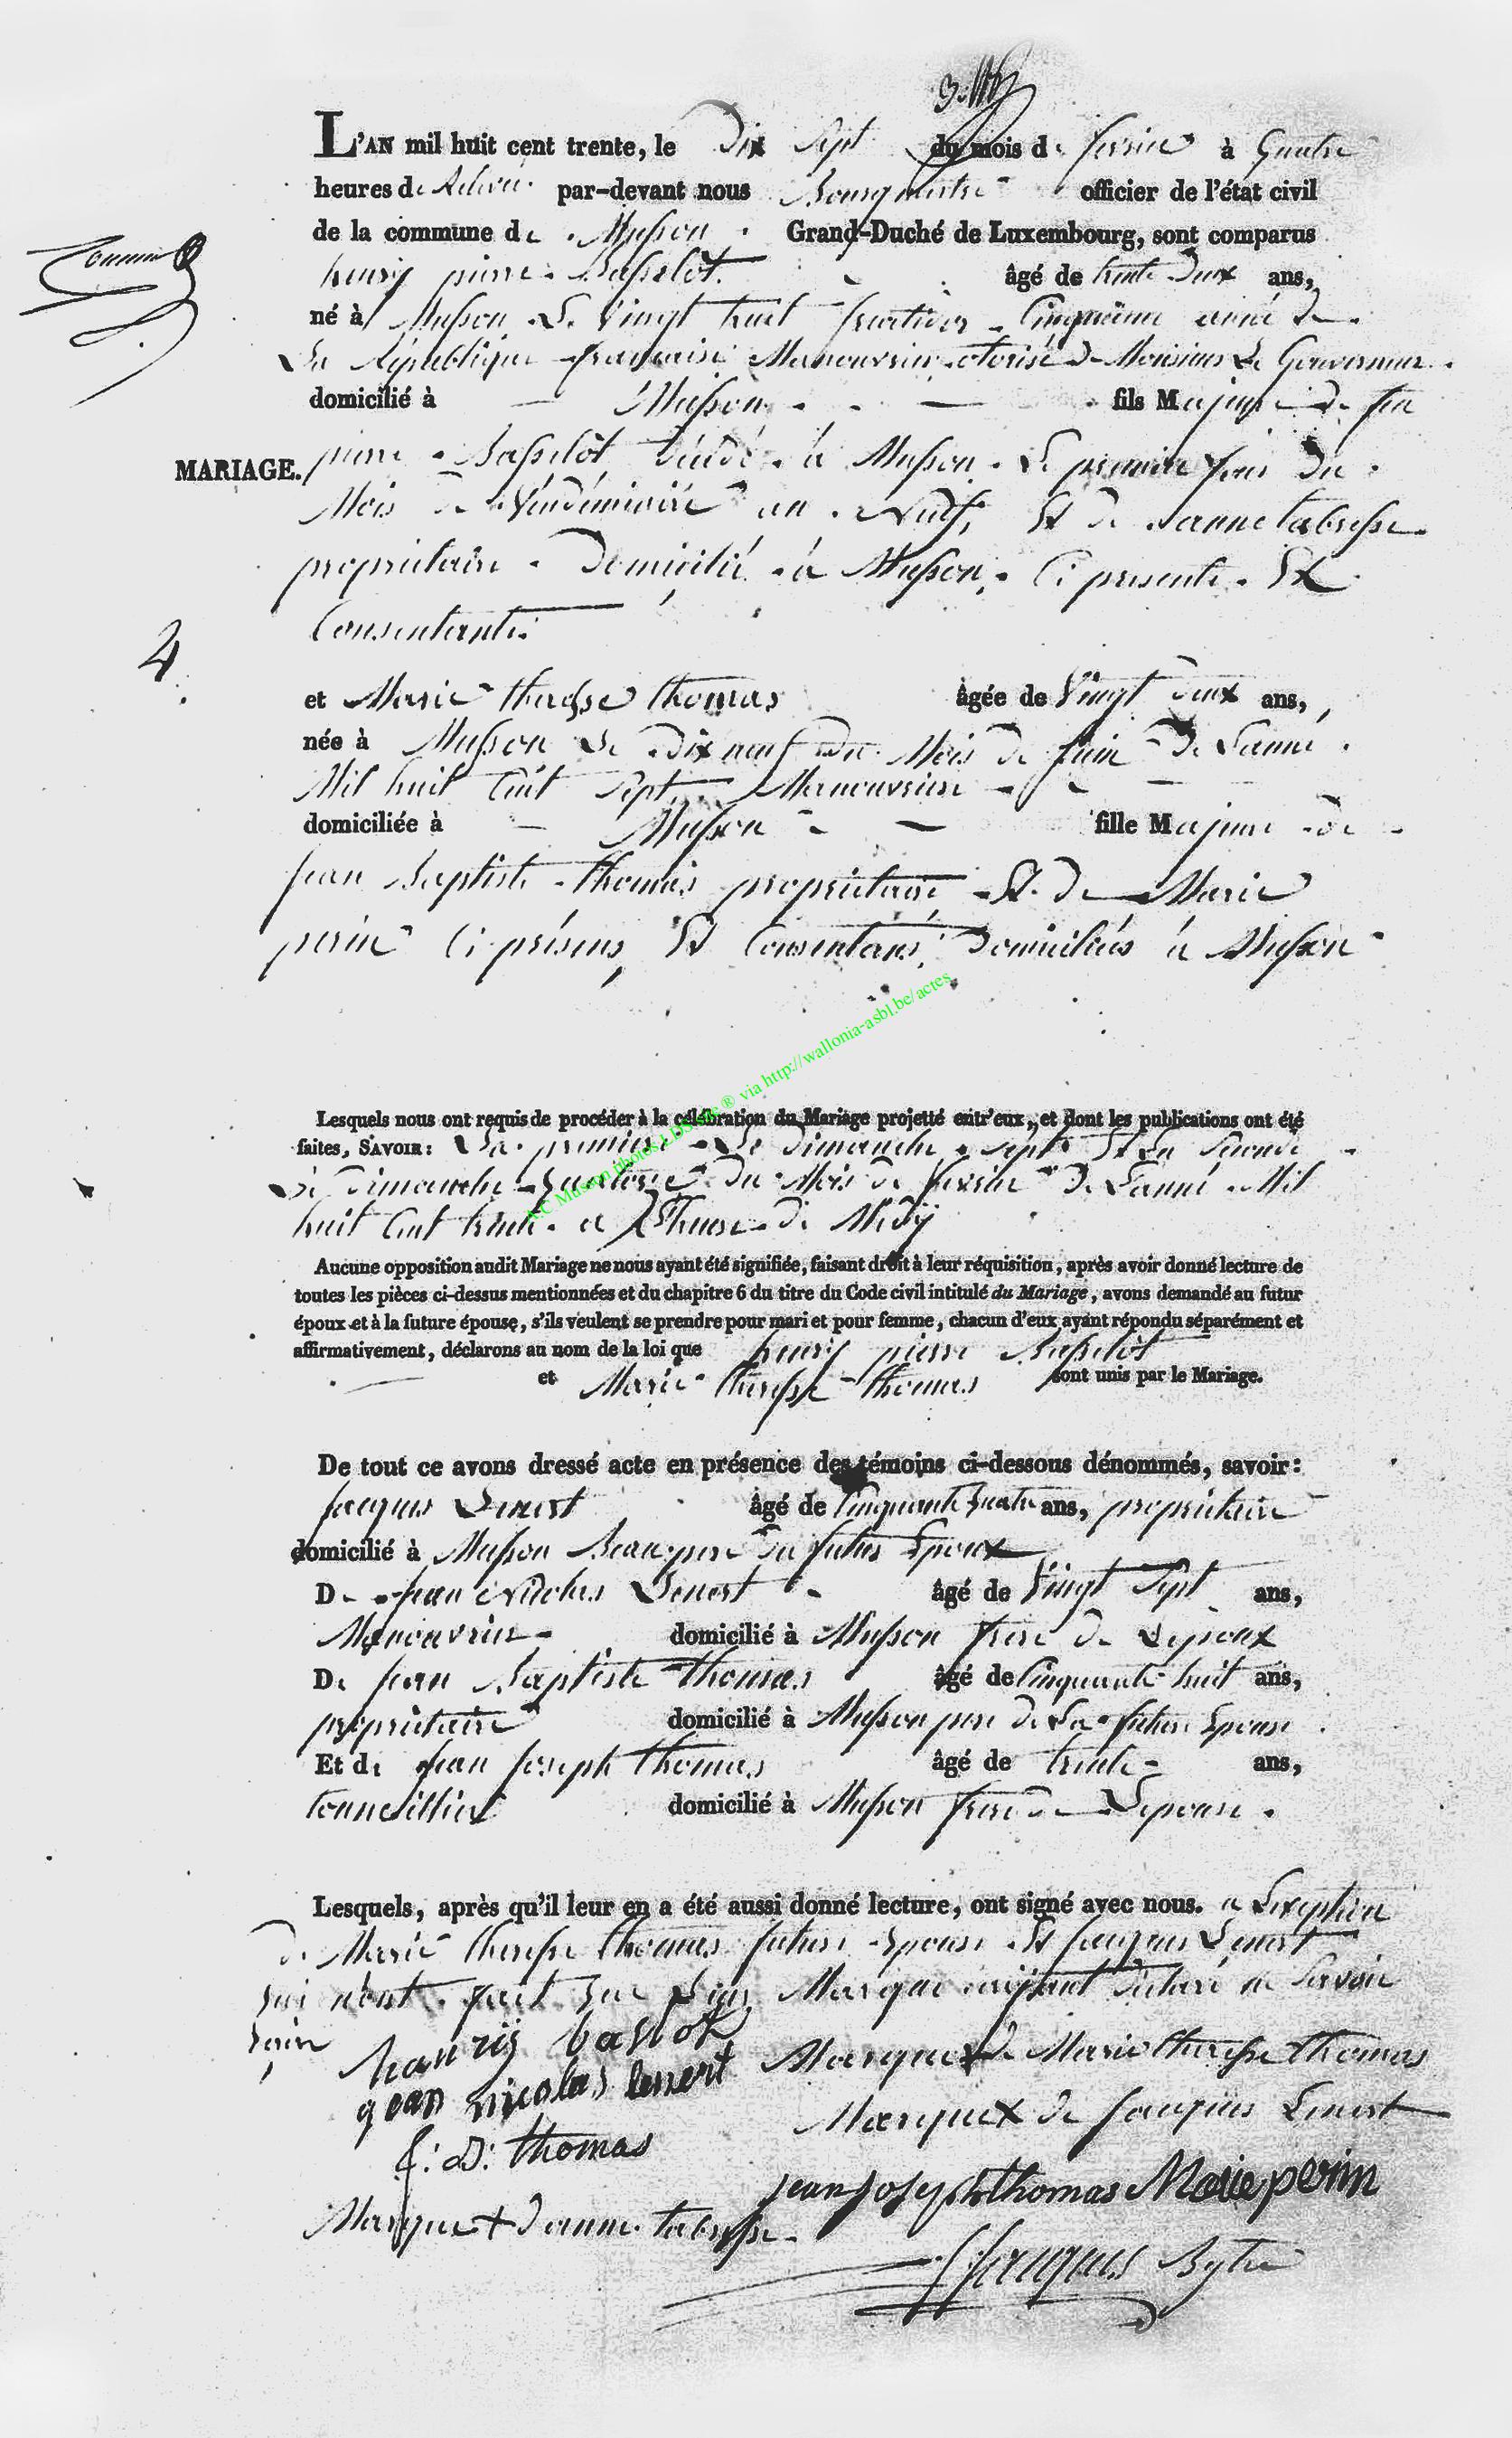 L'AN mil huit cent trente, le Dix Sept du mois de fevrier à Quatre
heures de Relevée par-devant nous Bourgmestre officier de l'état civil
de la commune de Musson Grand-Duché de Luxembourg, sont comparus
henry pierre Basselot âgé de trente Deux ans,
né à Musson Le Vingt huit fructidor Cinquième année De
La République française Manouvrier otorisé De Monsieur Le Gouverneur
domicilié à Musson fils Majeur De feu
MARIAGE. pierre Basselot, décédé à Musson Le premier jour Du
Mois De Vendémiaire an Neuf, Et De Janne tabresse
propriétaire Domicilié à Musson, Ci presente Et
Consentante
4
et Marie theresse thomas âgée de Vingt Deux ans,
née à Musson Le Dix neuf Du Mois De Juin De Lanné
Mil huit Cent Sept Manouvriere
domiciliée à Musson fille Majeure De
Jean Baptiste thomas propriétaire Et De Marie
perin Ci présens, Et Consentans, Domiciliés à Musson
A.C Musson photos LDS ® via http://wallonia-asbl.be/actes
Lesquels nous ont requis de procéder à la célébration du Mariage projetté entr'eux, et dont les publications ont été
faites, SAVOIR: La premiere Le Dimanche Sept Et La Seconde
Le Dimanche Quatorze Du Mois De fevrier De Lanné Mil
huit Cent trente a Lheure De Midÿ
Aucune opposition audit Mariage ne nous ayant été signifiée, faisant droit à leur réquisition, après avoir donné lecture de
toutes les pièces ci-dessus mentionnées et du chapitre 6 du titre du Code civil intitulé du Mariage, avons demandé au futur
époux et à la future épouse, s'ils veulent se prendre pour mari et pour femme, chacun d'eux ayant répondu séparément et
affirmativement, déclarons au nom de la loi que henry pierre Basselot
et Marie theresse thomas sont unis par le Mariage.
De tout ce avons dressé acte en présence des témoins ci-dessous dénommés, savoir:
Jacques Lenert âgé de Cinquante Quatre ans, propriétaire
domicilié à Musson Beau pere Du futur Epoux
De Jean Nicolas Lenert âgé de Vingt Sept ans,
Manouvrier domicilié à Musson frere De Lepoux
De Jean Baptiste thomas âgé de Cinquante huit ans,
propriétaire domicilié à Musson pere De La future Epouse
Et de Jean Joseph thomas âgé de trente ans,
tonneillier domicilié à Musson frere De Lepouse
Lesquels, après qu'il leur en a été aussi donné lecture, ont signé avec nous. a Lexeption
De Marie theresse thomas future Epouse Et Jacques Lenert
Qui n'ont fait Que Leur Marque aijant Déclaré ne Savoir
hanrij baslot Marque X De Marie theresse thomas
gean nicolas lenert Marque X De Jacques Lenert
J: B: thomas
jean joseph thomas Marie perin
Marque + D'anne tabresse
Jacques